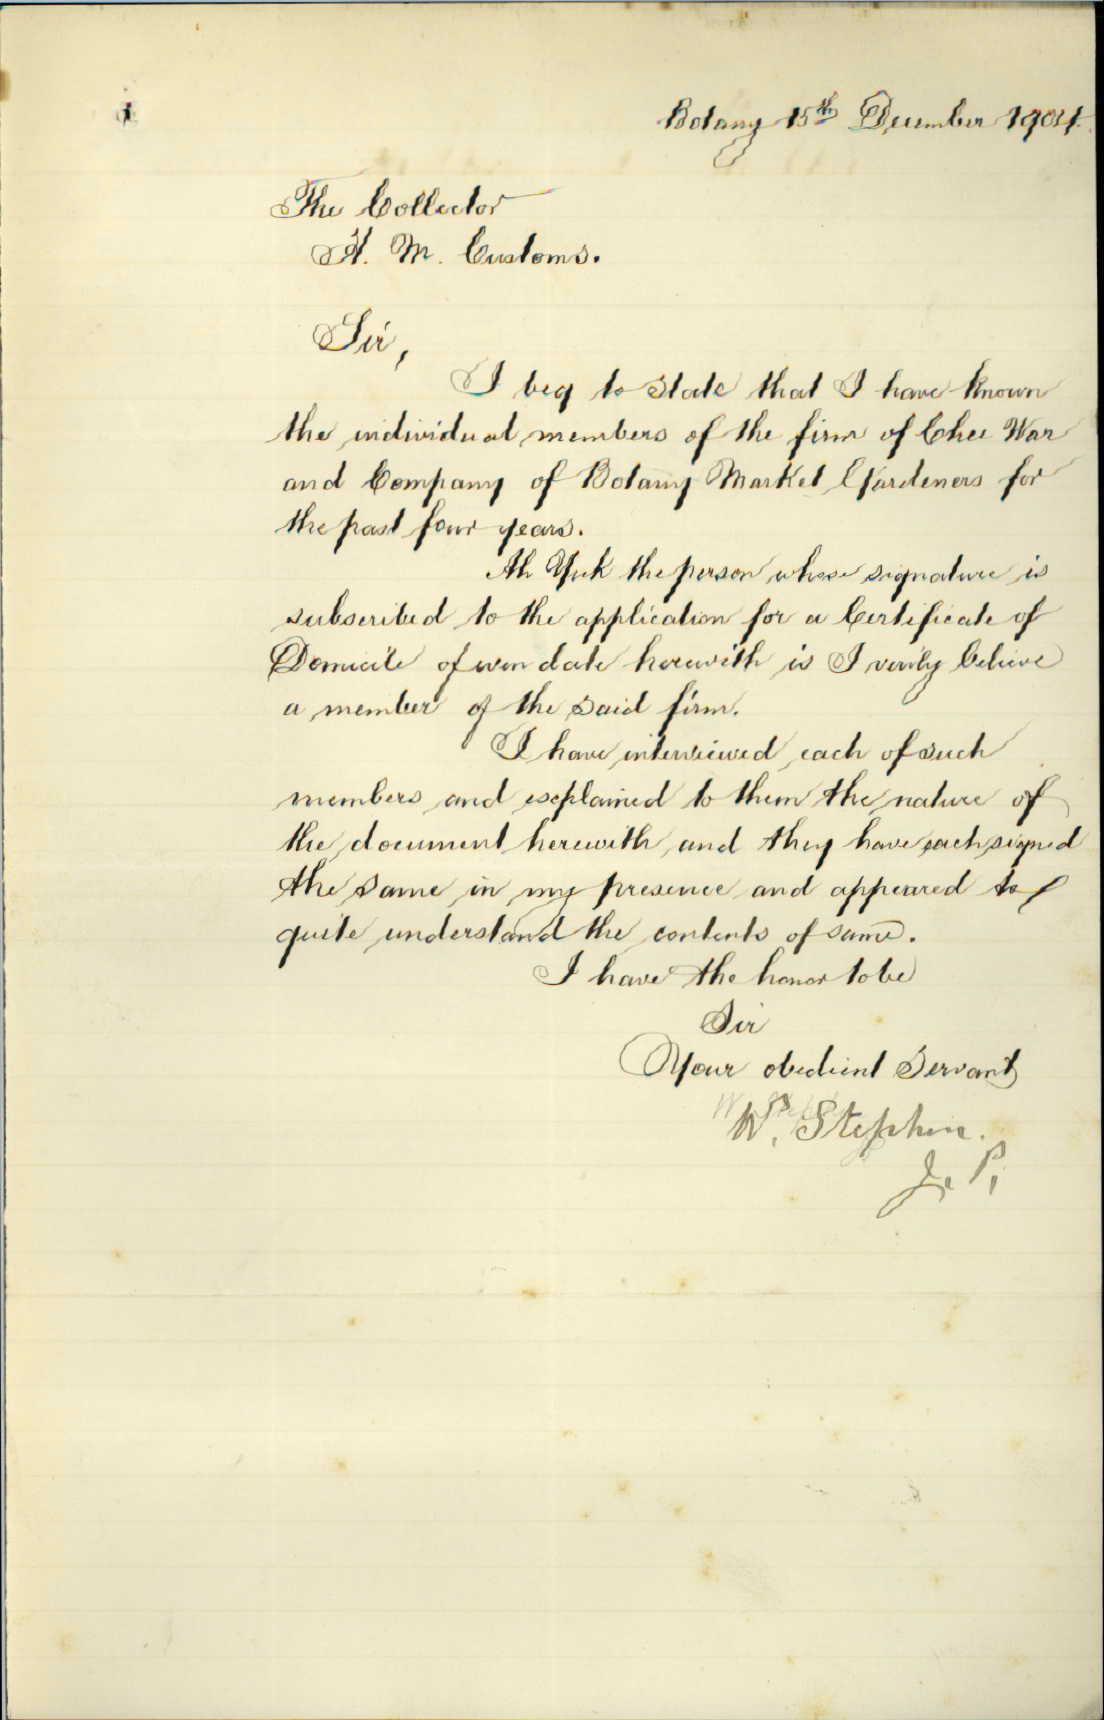 Botany 15th December 1904.
The Collector
H. M. Customs.
Sir,
I beg to state that I have known
the individual members of the firm of Chee War
and Company of Botany Market Gardeners for
the past four years.
Ah Yuk the person whose signature is
subscribed to the application for a Certificate of
Domicile of even date herewith is I verily believe
a member of the said firm.
I have interviewed each of such
members and explained to them the nature of
the document herewith and they have each signed
the same in my presence and appeared to
quite understand the contents of same.
I have the honor to be
Sir
Your obedient Servant
Wm. Stephen.
J. P.